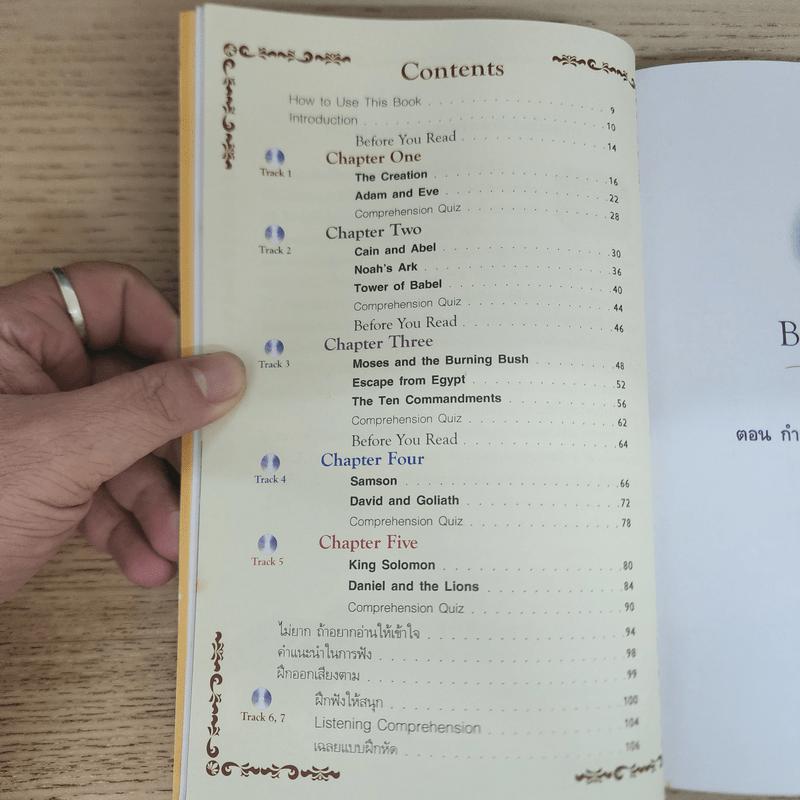 Contents
How to Use This Book . . . . . . . . . . . . . . 9
Introduction . . . . . . . . . . . . . . 10
Before You Read . . . . . . . . . . . . . . 14
Track 1 Chapter One
The Creation . . . . . . . . . . . . . . 16
Adam and Eve . . . . . . . . . . . . . . 22
Comprehension Quiz . . . . . . . . . . . . . . 28
Track 2 Chapter Two
Cain and Abel . . . . . . . . . . . . . . 30
Noah's Ark . . . . . . . . . . . . . . 36
Tower of Babel . . . . . . . . . . . . . . 40
Comprehension Quiz . . . . . . . . . . . . . . 44
Before You Read . . . . . . . . . . . . . . 46
Track 3 Chapter Three
Moses and the Burning Bush . . . . . . . . 48
Escape from Egypt . . . . . . . . . . . . . . 52
The Ten Commandments . . . . . . . . . . 56
Comprehension Quiz . . . . . . . . . . . . . . 62
Before You Read . . . . . . . . . . . . . . 64
Track 4 Chapter Four
Samson . . . . . . . . . . . . . . 66
David and Goliath . . . . . . . . . . . . . . 72
Comprehension Quiz . . . . . . . . . . . . . . 78
Track 5 Chapter Five
King Solomon . . . . . . . . . . . . . . 80
Daniel and the Lions . . . . . . . . . . . . 84
Comprehension Quiz . . . . . . . . . . . . . . 90
ไม่ยาก ถ้าอยากอ่านให้เข้าใจ . . . . . . . . . . . . . . 94
คำแนะนำในการฟัง . . . . . . . . . . . . . . 98
ฝึกออกเสียงตาม . . . . . . . . . . . . . . 99
Track 6, 7 ฝึกฟังให้สนุก . . . . . . . . . . . . . . 100
Listening Comprehension . . . . . . . . . . 104
เฉลยแบบฝึกหัด . . . . . . . . . . . . . . 106
B
ตอน กำ